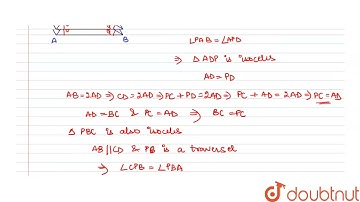 A B
∠PAB = ∠APD
⇒ △ADP is isosceles
AD = PD
AB = 2AD ⇒ CD = 2AD ⇒ PC + PD = 2AD ⇒ PC + AD = 2AD ⇒ PC = AD
AD = BC & PC = AD ⇒ BC = PC
△ PBC is also isosceles
AB || CD & PB is a traversel
⇒ ∠CPB = ∠PBA
doubtnut